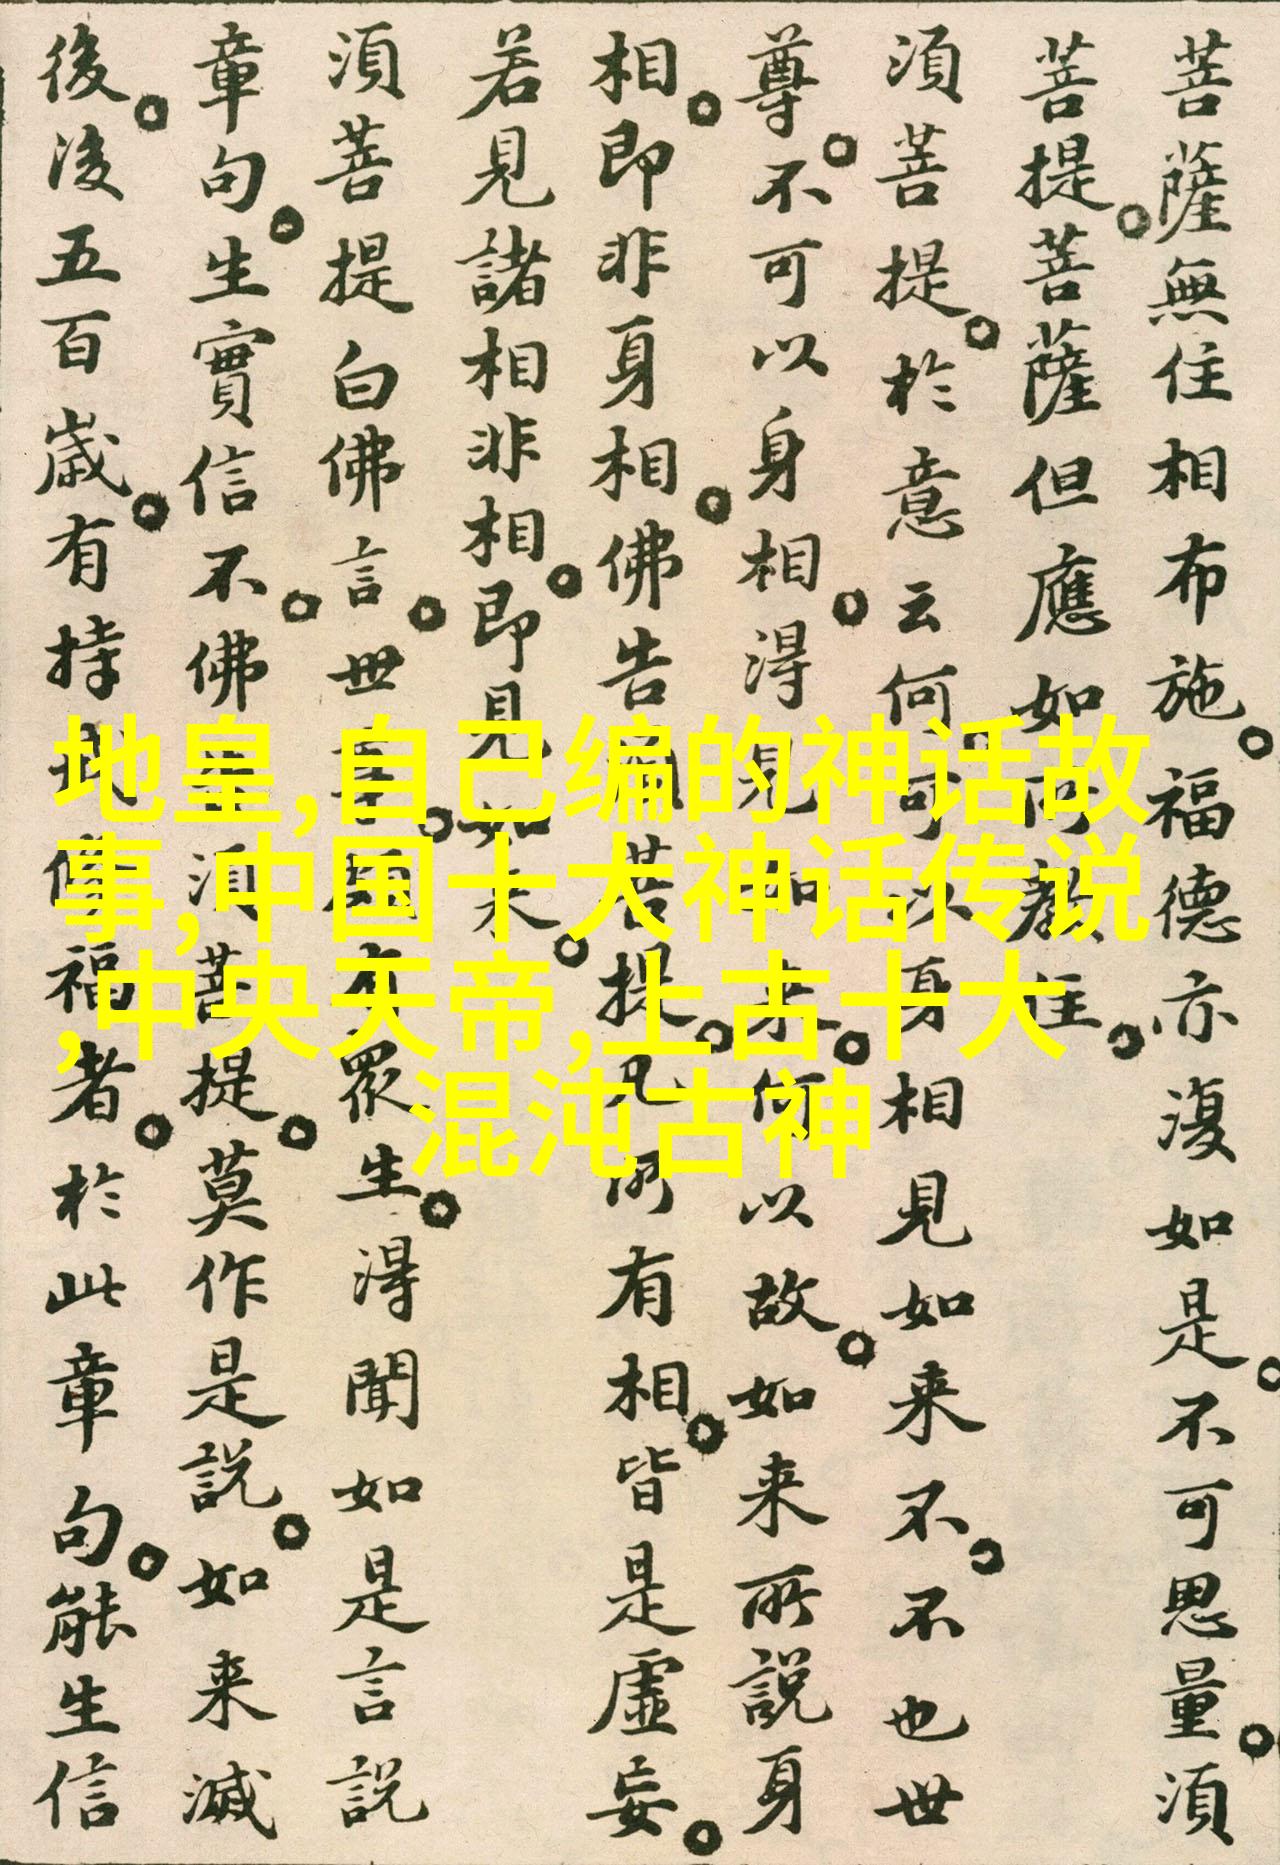 菩薩無住相布施。福德亦復如是。不可思量。須
菩提。菩薩但應如所教住。
須菩提。於意云何。可以身相見如来不。不也世
尊。不可以身相。得見如来。何以故。如来所說身
相。即非身相。佛告須菩提。凡所有相。皆是虛妄。
若見諸相非相。即見如来。
須菩提白佛言。世尊。頗有眾生。得聞如是言說
章句。生實信不。佛告須菩提。莫作是說。如来滅
後。後五百歲。有持戒修福者。於此章句。能生信
地皇,自己编的神话故
事,中国十大神话传说
,中央天帝,上古十大
混沌古神